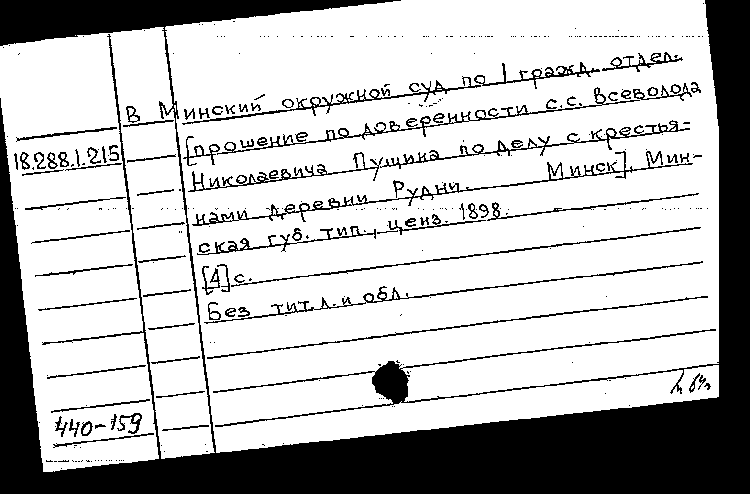 В Минский окружной суд по I гражд. отдел.
18.288.1.215
[прошение по доверенности с.с. Всеволода
Николаевича Пущина по делу с крестья-
нами деревни Рудни. Минск], Мин-
ская губ. тип., ценз. 1898.
[4]с.
Без тит.л. и обл.
440-159